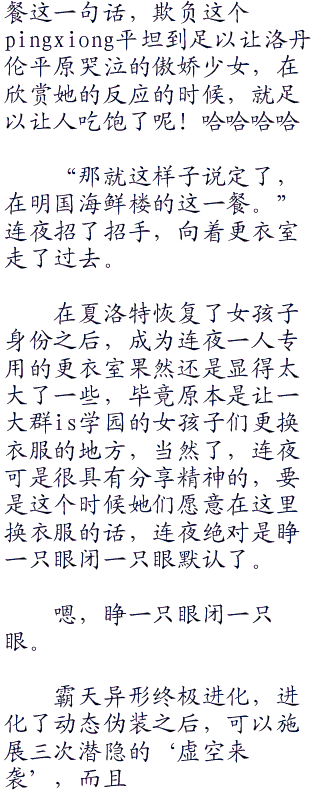 餐这一句话，欺负这个
pingxiong平坦到足以让洛丹
伦平原哭泣的傲娇少女，在
欣赏她的反应的时候，就足
以让人吃饱了呢！哈哈哈哈
“那就这样子说定了，
在明国海鲜楼的这一餐。”
连夜招了招手，向着更衣室
走了过去。
在夏洛特恢复了女孩子
身份之后，成为连夜一人专
用的更衣室果然还是显得太
大了一些，毕竟原本是让一
大群is学园的女孩子们更换
衣服的地方，当然了，连夜
可是很具有分享精神的，要
是这个时候她们愿意在这里
换衣服的话，连夜绝对是睁
一只眼闭一只眼默认了。
嗯，睁一只眼闭一只
眼。
霸天异形终极进化，进
化了动态伪装之后，可以施
展三次潜隐的‘虚空来
袭’，而且